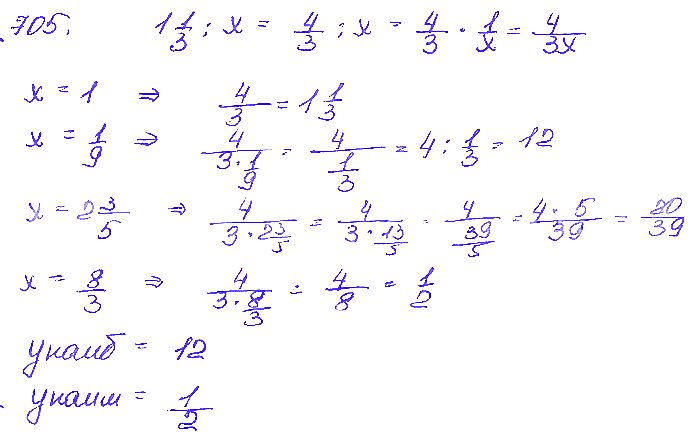 705. 1 1/3 : x = 4/3 : x = 4/3 · 1/x = 4/3x
x = 1 ⇒ 4/3 = 1 1/3
x = 1/9 ⇒ 4/(3·1/9) = 4/(1/3) = 4 : 1/3 = 12
x = 2 3/5 ⇒ 4/(3·2 3/5) = 4/(3·13/5) = 4/(39/5) = 4·5/39 = 20/39
x = 8/3 ⇒ 4/(3·8/3) = 4/8 = 1/2
yнаиб = 12
yнаим = 1/2